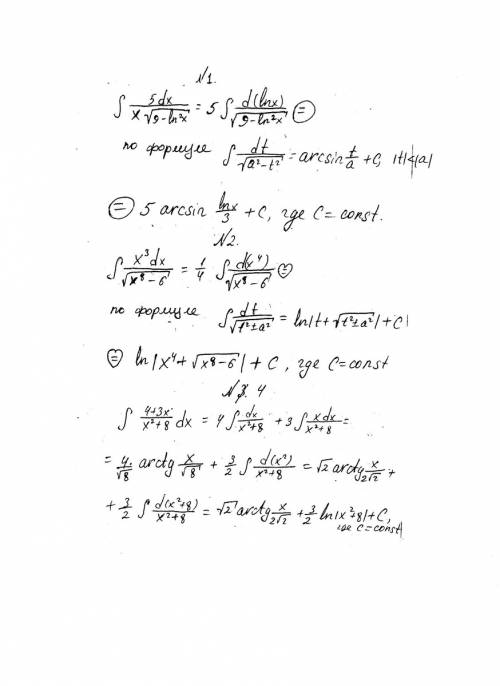 N1.
∫ 5dx / x√(9-ln²x) = 5 ∫ d(lnx) / √(9-ln²x) =
по формуле ∫ dt / √(a²-t²) = arcsin t/a + C, |t|<|a|
= 5 arcsin lnx/3 + C, где C = const.
N2.
∫ x³dx / √(x⁸-6) = 1/4 ∫ d(x⁴) / √(x⁸-6) =
по формуле ∫ dt / √(t²±a²) = ln|t+√(t²±a²)| + C
= ln|x⁴+√(x⁸-6)| + C, где C=const
N 4
∫ 4+3x / x²+8 dx = 4 ∫ dx / x²+8 + 3 ∫ xdx / x²+8 =
= 4/√8 arctg x/√8 + 3/2 ∫ d(x²) / x²+8 = √2 arctg x/2√2 +
+ 3/2 ∫ d(x²+8) / x²+8 = √2 arctg x/2√2 + 3/2 ln|x²+8| + C,
где C=const